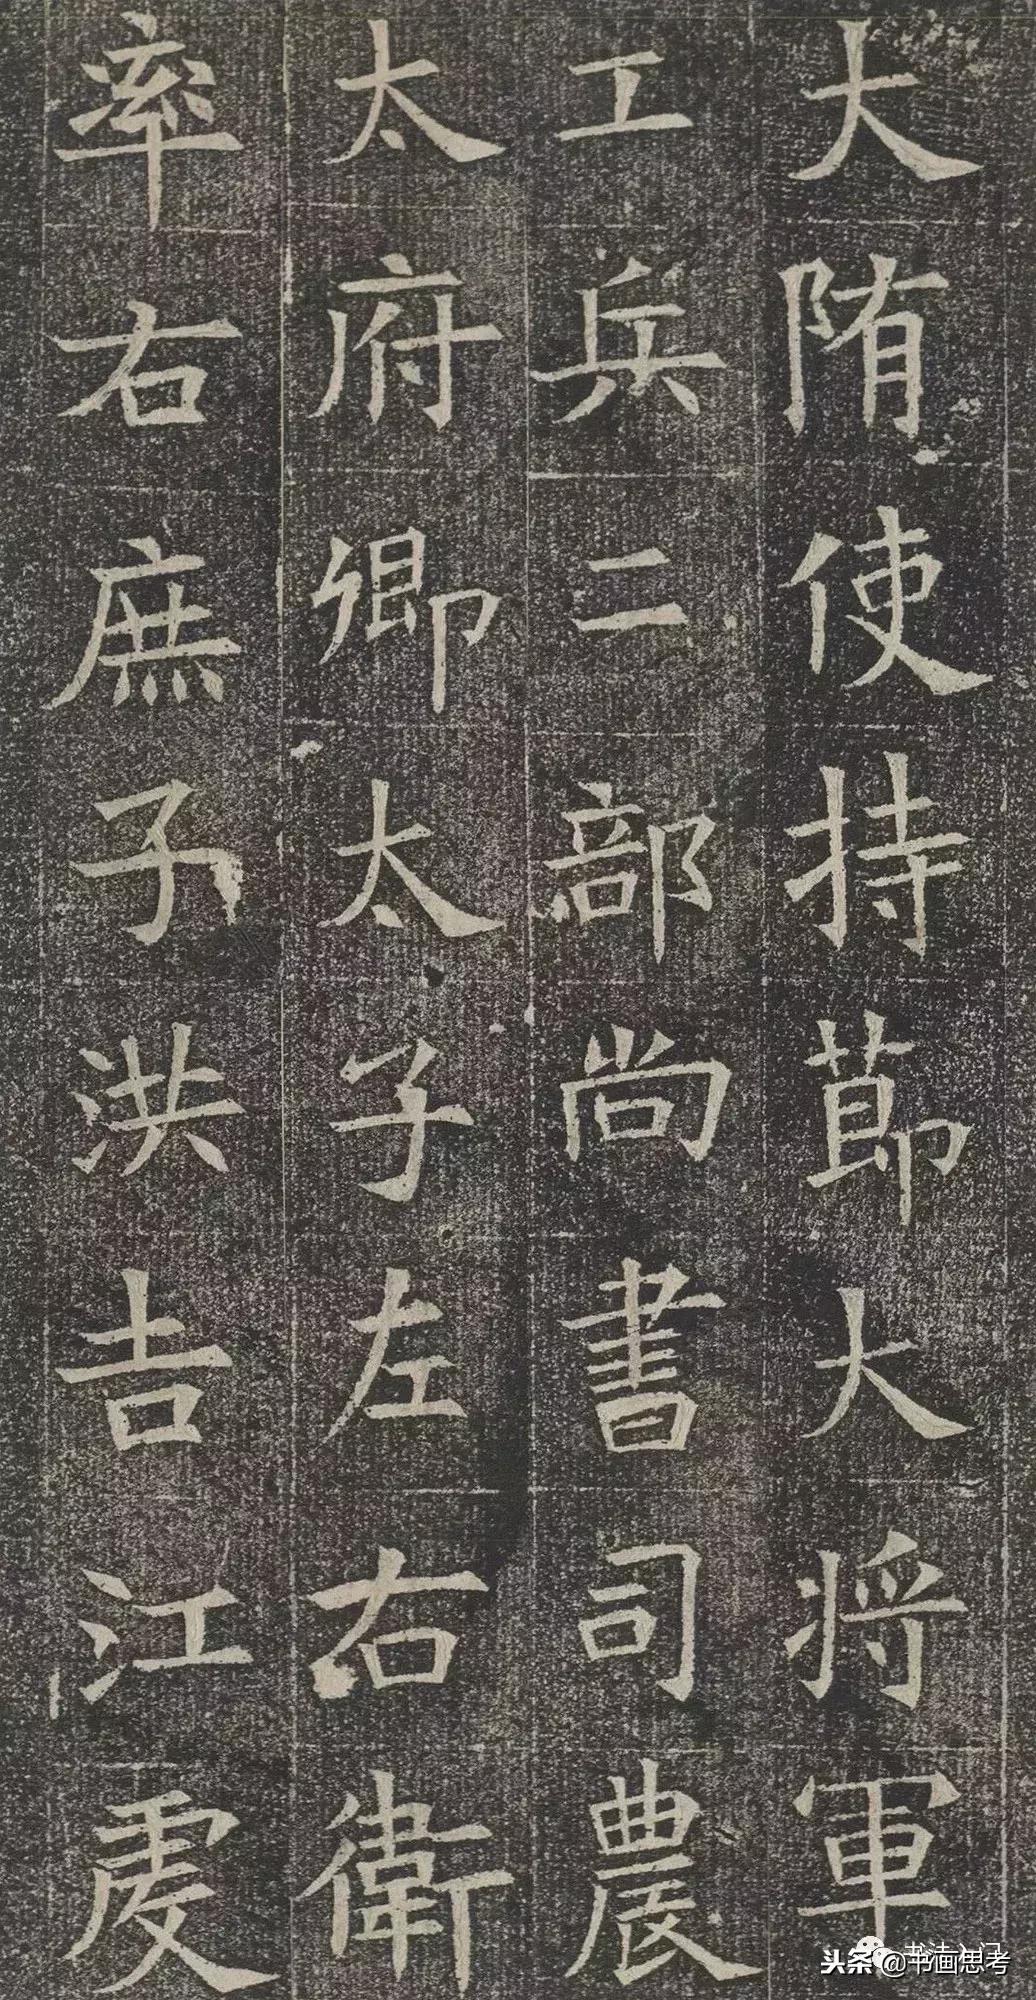 大隋使持節大將軍
工兵二部尚書司農
太府卿太子左右衛
率右庶子洪吉江虔
头条 @书画思考